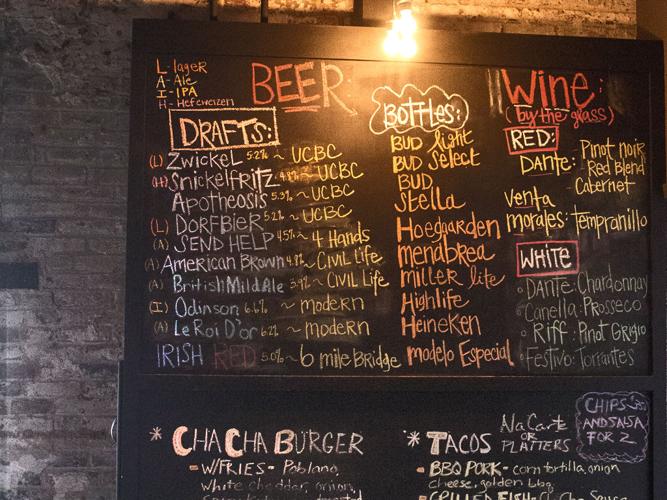 L - lager
A - Ale
I - IPA
H - Hefeweizen
BEER
DRAFTS:
(L) ZWICKEL 5.2% ~ UCBC
(H) Snickelfritz 4.8% ~ UCBC
Apotheosis 5.3% ~ UCBC
(L) DORFBIER 5.2% ~ UCBC
(A) SEND HELP 4.5% ~ 4 Hands
(A) American Brown 4.8% ~ CIVIL Life
(A) British Mild Ale 3.9% ~ CIVIL Life
(I) Odinson 6.6% ~ modern
(A) Le Roi D'or 6.2% ~ modern
IRISH RED 5.0% ~ 6 mile Bridge
BOTTLES:
BUD light
BUD select
BUD
Stella
Hoegaarden
menabrea
miller lite
Highlife
Heineken
modelo Especial
WINE:
(by the glass)
RED:
DANTE: Pinot noir
Red Blend
Cabernet
venta
morales: tempranillo
WHITE
DANTE: Chardonnay
Canella: Prosseco
Riff: Pinot Grigio
Festivo: Torrontes
* CHA CHA BURGER
- W/FRIES - Poblano,
white cheddar, onion,
* TACOS A la Carte
OR
PLATTERS
- BBQ PORK - corn tortilla, onion
cheese, golden bbq
CHIPS
AND SALSA
FOR 2